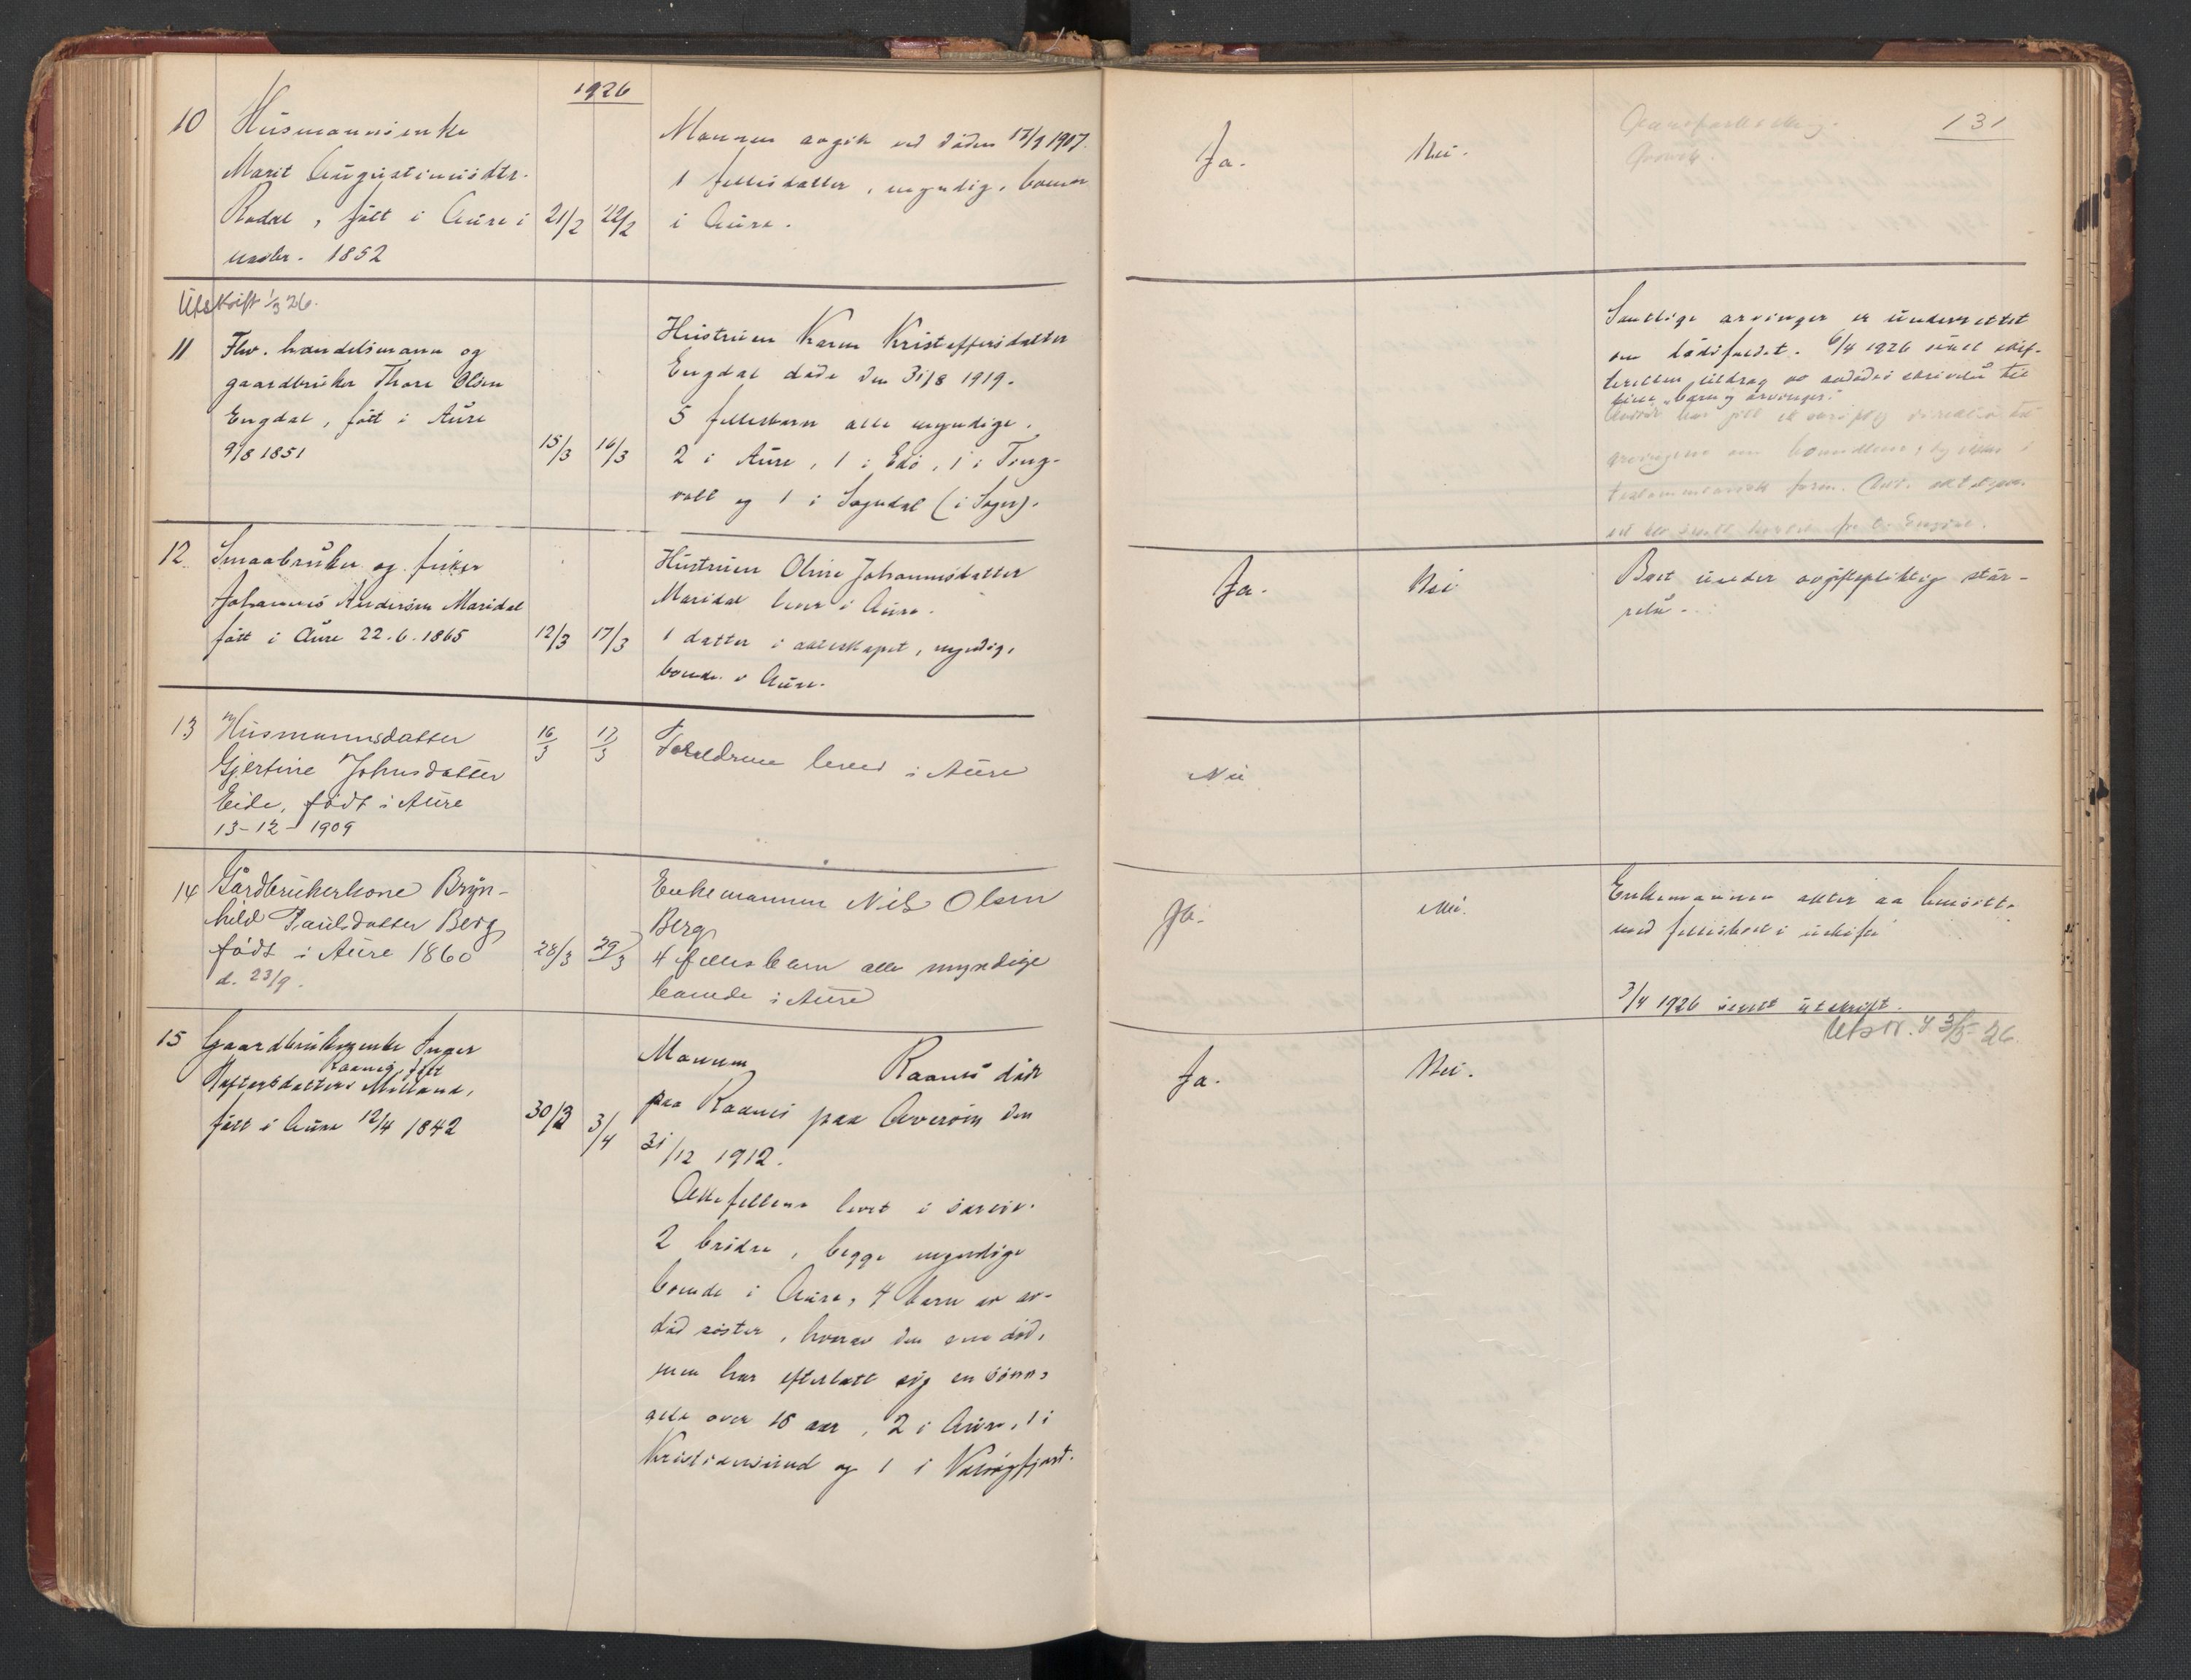 1926
10 Husmannsenke
Marit Augustinusdtr.
Rodal, født i Aure i
1852
21/2 22/2
Mannen avgik ved døden 17/9 1907.
1 fellesdatter, myndig, boende
i Aure.
Ja. Nei.
131
Utskrift 1/3 26.
11 Fhv. handelsmann og
gaardbruker Thore Olsen
Engdal, født i Aure
9/8 1851
15/3 16/3
Hustruen Karen Kristoffersdatter
Engdal døde den 31/8 1919.
5 fellesbarn alle myndige.
2 i Aure, 1 i Edø, 1 i Ting-
voll og 1 i Sogndal (i Sogn).
Samtlige arvinger er underrettet
om dødsfaldet. 6/4 1926 sendt skif-
teretten utdrag av avdødes skrivelse til
sine "barn og arvinger."
12. Smaabruker og fisker
Johannes Andersen Maridal
født i Aure 22.6.1865
12/3 17/3
Hustruen Oline Johannesdatter
Maridal lever i Aure.
1 datter i ækteskapet, myndig,
boende i Aure.
Ja. Nei
Boet under avgiftspliktig stør-
relse.
13 Husmannsdatter
Gjertine Johnsdatter
Eide, født i Aure
13-12-1909
16/3 17/3
Forældrene lever i Aure
Nei
14 Gårdbrukerkone Bryn-
hild Paulsdatter Berg
født i Aure 1860
d. 23/9.
28/3 29/3
Enkemannen Nils Olsen
Berg
4 fellesbarn alle myndige
boende i Aure
Ja. Nei.
Enkemannen akter aa bensitte
med fellesboet i uskifte
3/4 1926 sendt utskrift.
15 Gaardbrukerenke Inger
Raanes, født
Haftorsdatter Melland,
født i Aure 12/4 1842
30/3 3/4
Mannen Raanes døde
paa Raanes paa Averøen den
31/12 1912.
Ektefellene levet i særeie.
2 brødre, begge myndige
boende i Aure, 4 barn av av-
død søster, hvorav den ene død,
men har efterlatt sig en sønn,
alle over 18 aar, 2 i Aure, 1 i
Kristiansund og 1 i Valsøyfjord.
Ja. Nei.
Utskr. 3/5-26.